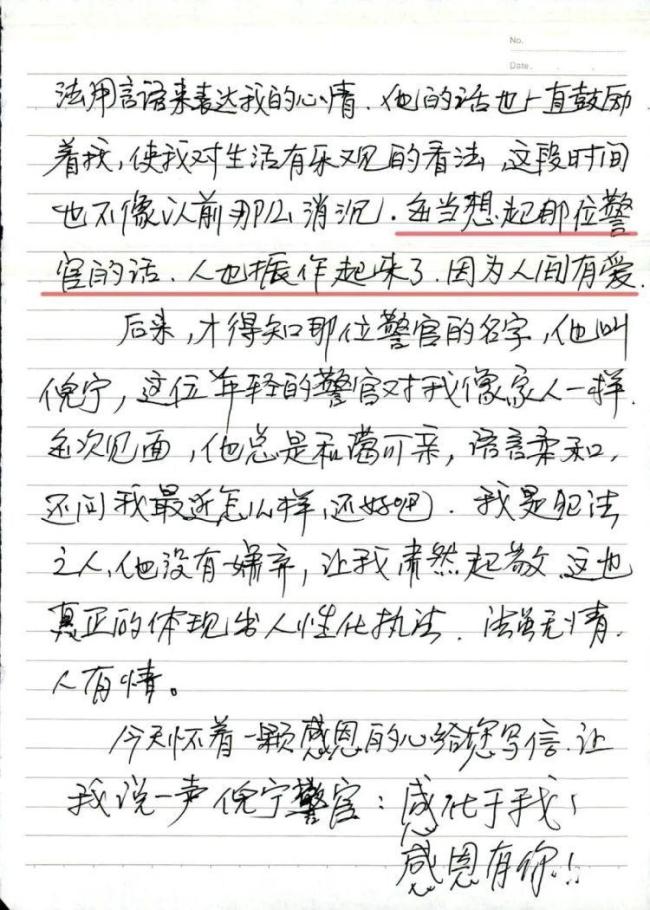 No.
Date.
法用言语来表达我的心情.他的话也一直鼓励
着我,使我对生活有乐观的看法,这段时间
也不像以前那么消沉.每当想起那位警
官的话.人也振作起来了.因为人间有爱.
后来,才得知那位警官的名字,他叫
倪宁,这位年轻的警官对我像家人一样.
每次见面,他总是和蔼可亲,语言柔和,
还问我最近怎么样,还好吧.我是犯法
之人,他没有嫌弃,让我肃然起敬.这也
真正的体现出人性化执法.法虽无情.
人有情。
今天怀着一颗感恩的心给您写信.让
我说一声倪宁警官:感化于我!
感恩有你!!